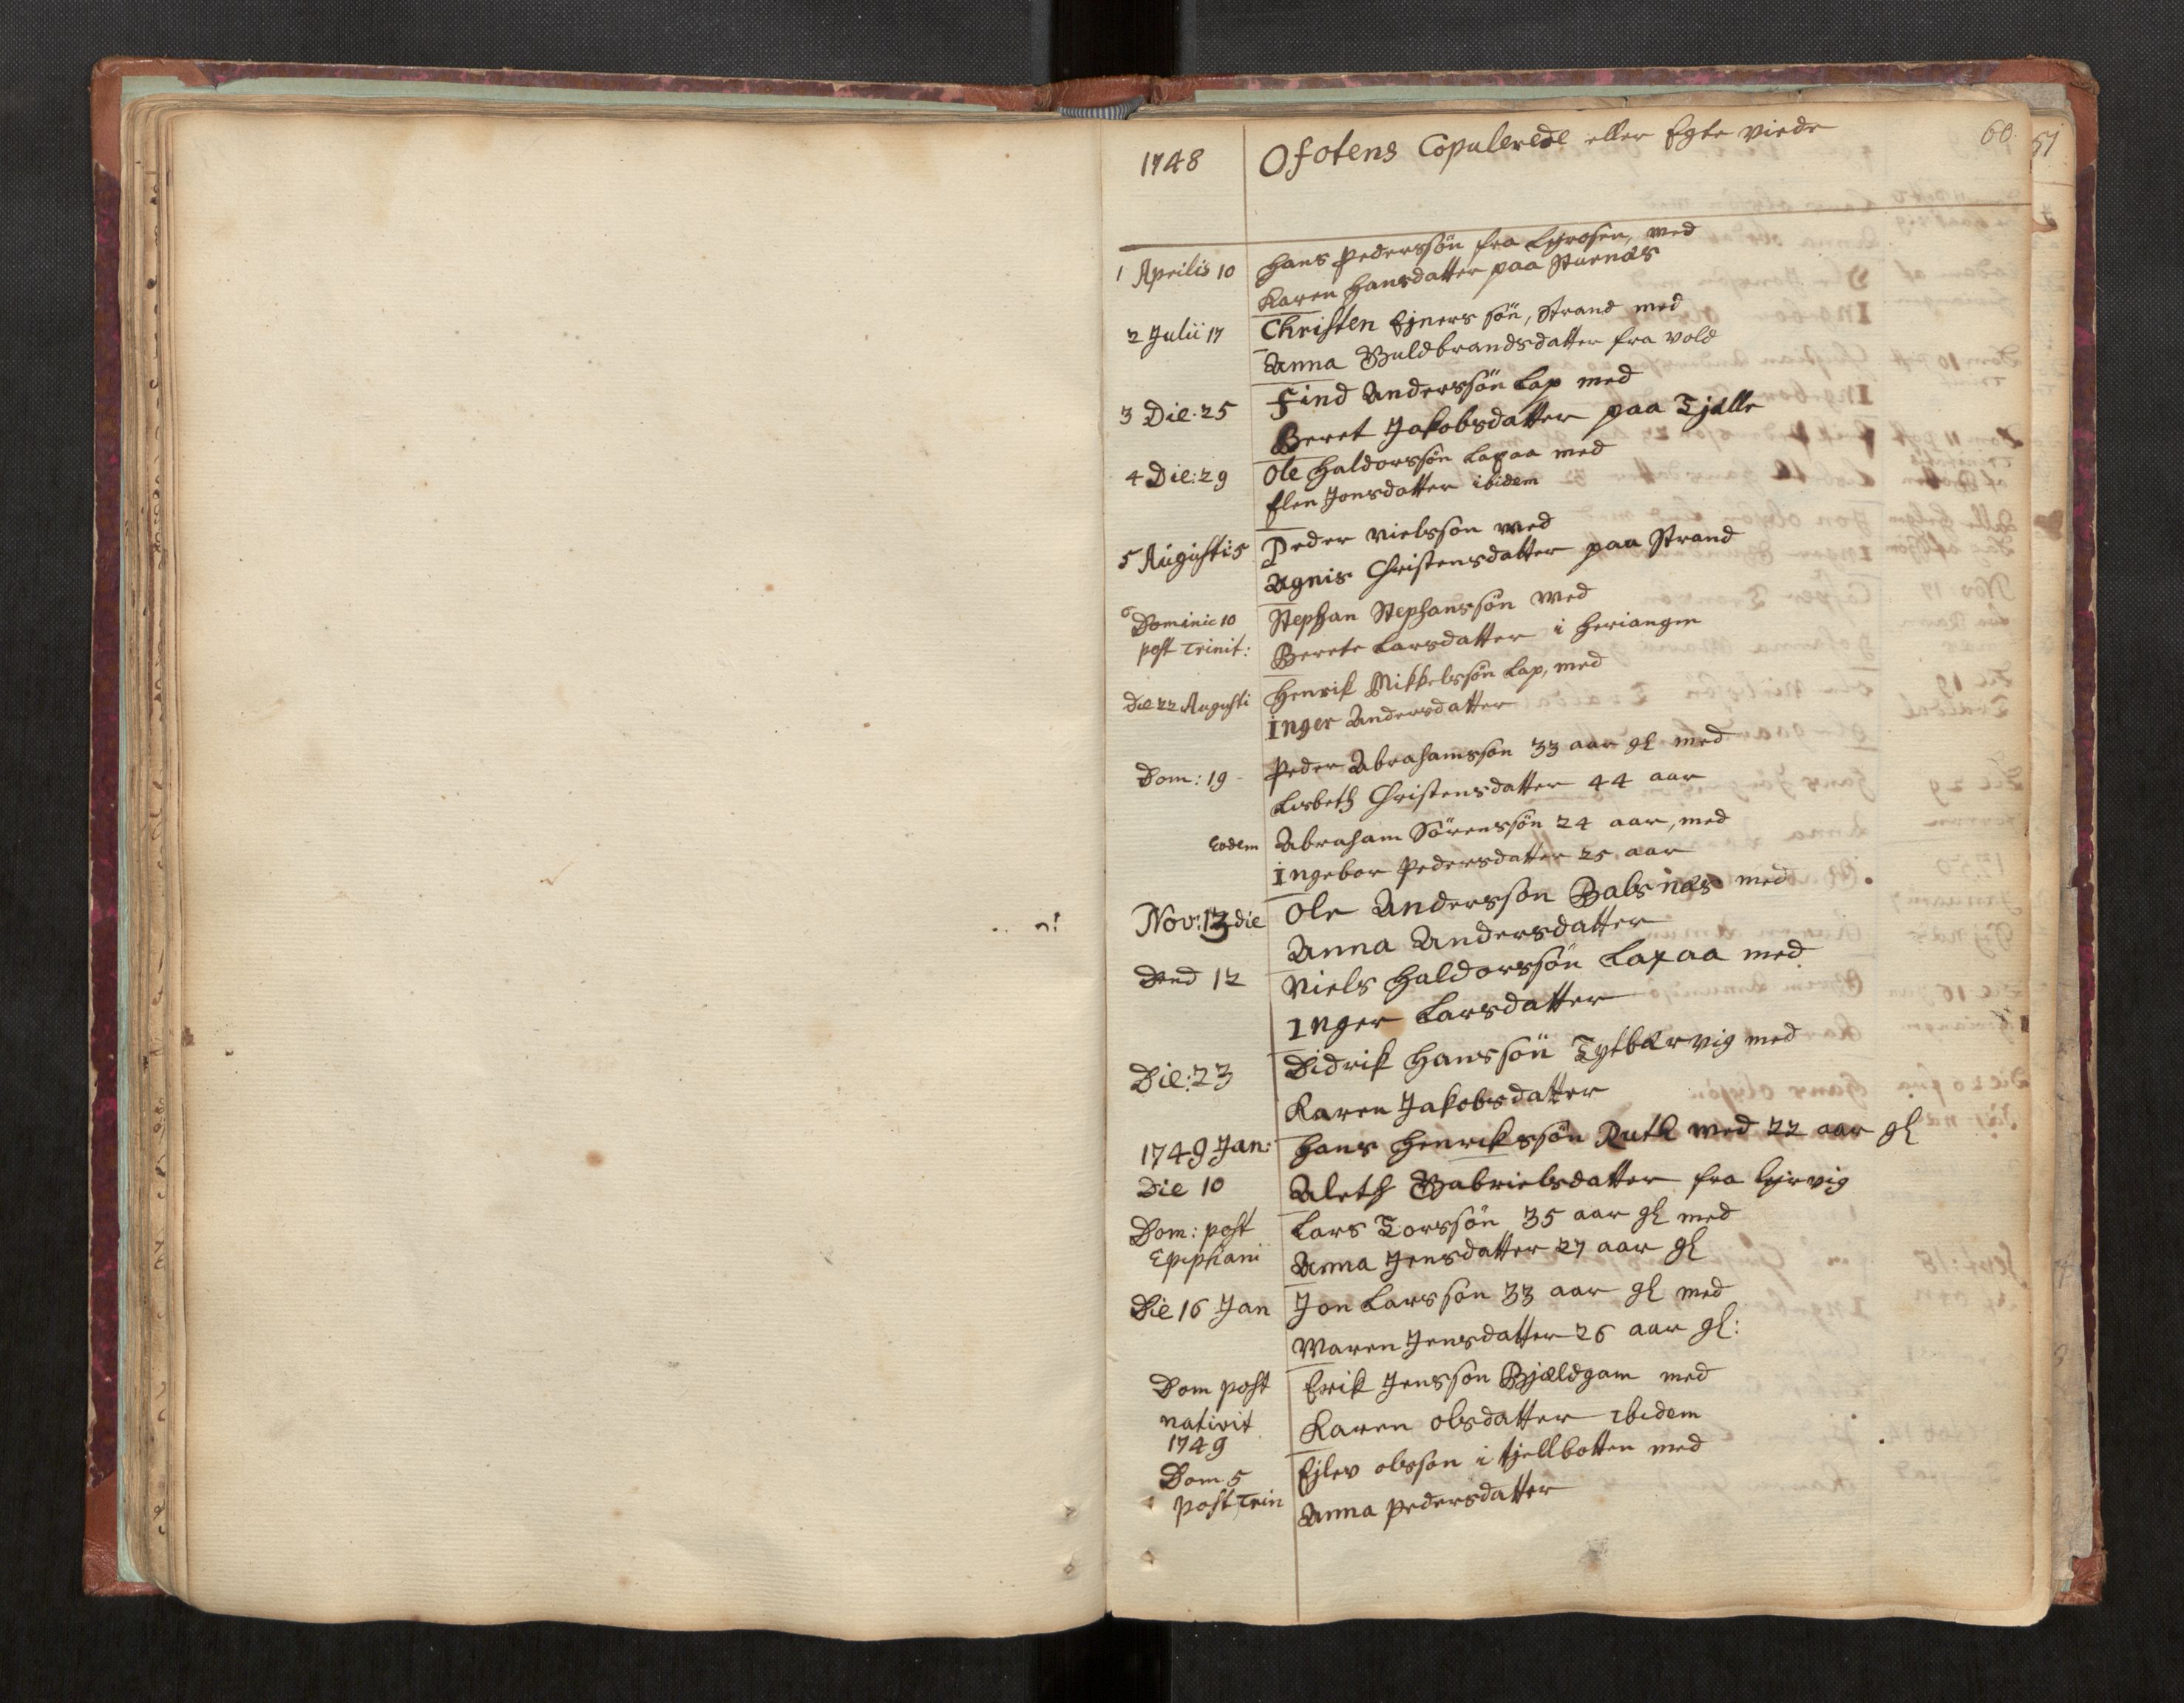 1748 Ofotens Copulerede eller Egte viede 60.
57
1 Aprilis 10 Hans Pederssøn fra Lyrosen, med
Karen Hansdatter paa Stuenæs
2 Julii 17 Christen Ejners søn, Strand med
Anna Guldbrandsdatter fra vold
3 Die. 25 Find Anderssøn Lap med
Beret Jakobsdatter paa Tjælle
4 Die: 29 Ole Haldorssøn Lapaa med
Elen Jonsdatter ibidem
5 Augusti 5 Peder Nielsson med
Agnis Christensdatter paa Strand
6 Dominic 10 Stephan Stephanssøn med
post Trinit: Berete Larsdatter i Heriangen
Die 22 Augusti Henrik Mikkelssøn Lap, med
Inger Andersdatter
Dom: 19 - Peder Abrahamsson 33 aar gl med
Lisbeth Christensdatter 44 aar
Eodem Abraham Sörenssøn 24 aar, med
Ingebor Pedersdatter 25 aar
Nov: 13 die Ole Andersson Balsnæs med
Anna Andersdatter
12 Niels Haldorssøn Lapaa med
Inger Larsdatter
Die: 23 Didrik Hanssøn Tytbærvig med
Karen Jakobsdatter
1749 Jan: Hans Henrikssøn Ruth med 22 aar gl
Die 10 Aleth Gabrielsdatter fra Lyrvig
Dom: post Lars Torssøn 35 aar gl med
Epiphani Anna Jensdatter 27 aar gl
Die 16 Jan Jon Larsson 33 aar gl med
Maren Jensdatter 26 aar gl:
Dom post Erik Jensson Bjældgam med
nativit Karen olsdatter ibidem
1749
Dom. 5 Ejlev olsson i tjellbotten med
post Trin Anna Pedersdatter